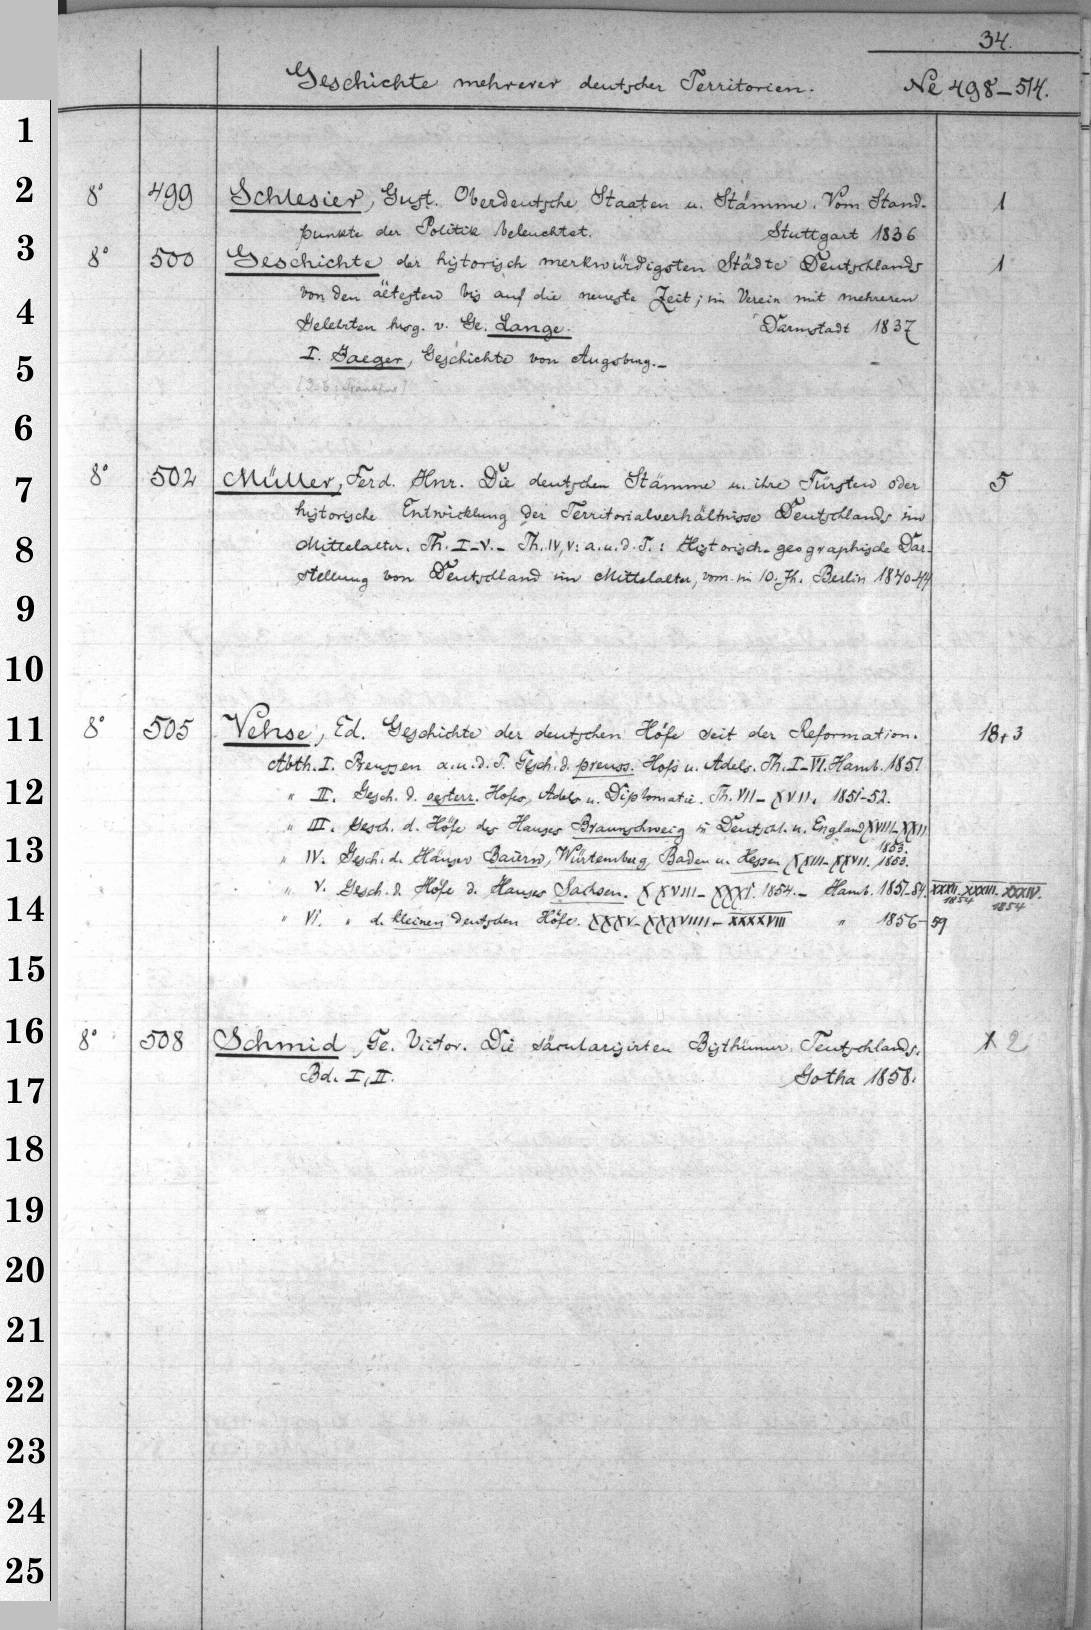 34.
Geschichte mehrerer deutscher Territorien. No 498-514.
1
2
3
4
5
6
7
8
9
10
11
12
13
14
15
16
17
18
19
20
21
22
23
24
25
8° 499 Schlesier, Gust. Oberdeutsche Staaten u. Stämme. Vom Stand- 1
punkte der Politik beleuchtet. Stuttgart 1836
8° 500 Geschichte der historisch merkwürdigsten Städte Deutschlands 1
von den ältesten bis auf die neueste Zeit; im Verein mit mehreren
Gelehrten hrsg. v. Ge. Lange. Darmstadt 1837
I. Jaeger, Geschichte von Augsburg. -
8° 502 Müller, Ferd. Hnr. Die deutschen Stämme u. ihre Fürsten oder 5
historische Entwicklung der Territorialverhältnisse Deutschlands im
Mittelalter. Th. I-V. - Th. IV, V: a. u. d. T.: Historisch-geographische Dar-
stellung von Deutschland im Mittelalter, vom im 10. Jh. Berlin 1840-44
8° 505 Vehse, Ed. Geschichte der deutschen Höfe seit der Reformation. 18+3
Abth. I. Preussen a. u. d. T. Gesch. d. preuss. Hofs u. Adels. Th. I-VI. Hamb. 1851
" II. Gesch. d. oesterr. Hofes, Adels u. Diplomatie. Th. VII-XVII. 1851-52.
" III. Gesch. d. Höfe des Hauses Braunschweig in Deutschl. u. England XVIII-XXII
1853.
" IV. Gesch. d. Häuser Baiern, Würtemberg, Baden u. Hessen XXIII-XXVII. 1853.
" V. Gesch. d. Höfe d. Hauses Sachsen. XXVIII-XXXI. 1854. - Hamb. 1851-54. XXXII. XXXIII. XXXIV.
1854 1854
" VI. " d. kleinen deutschen Höfe. XXXV-XXXVIIII-XXXXVIII " 1856-59
8° 508 Schmid, Ge. Victor. Die säcularisirten Bisthümer Teutschlands. 2
Bd. I, II. Gotha 1858.